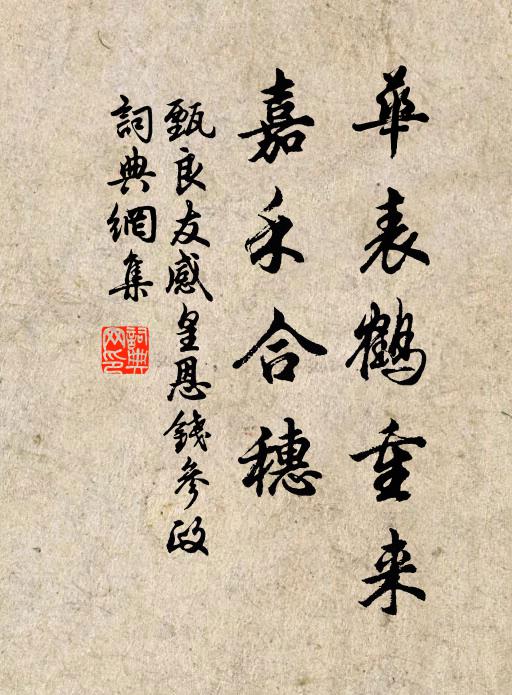 華表鶴重来
嘉禾合穗
甄良友感皇恩錢參政
詞典網集
詞典网印